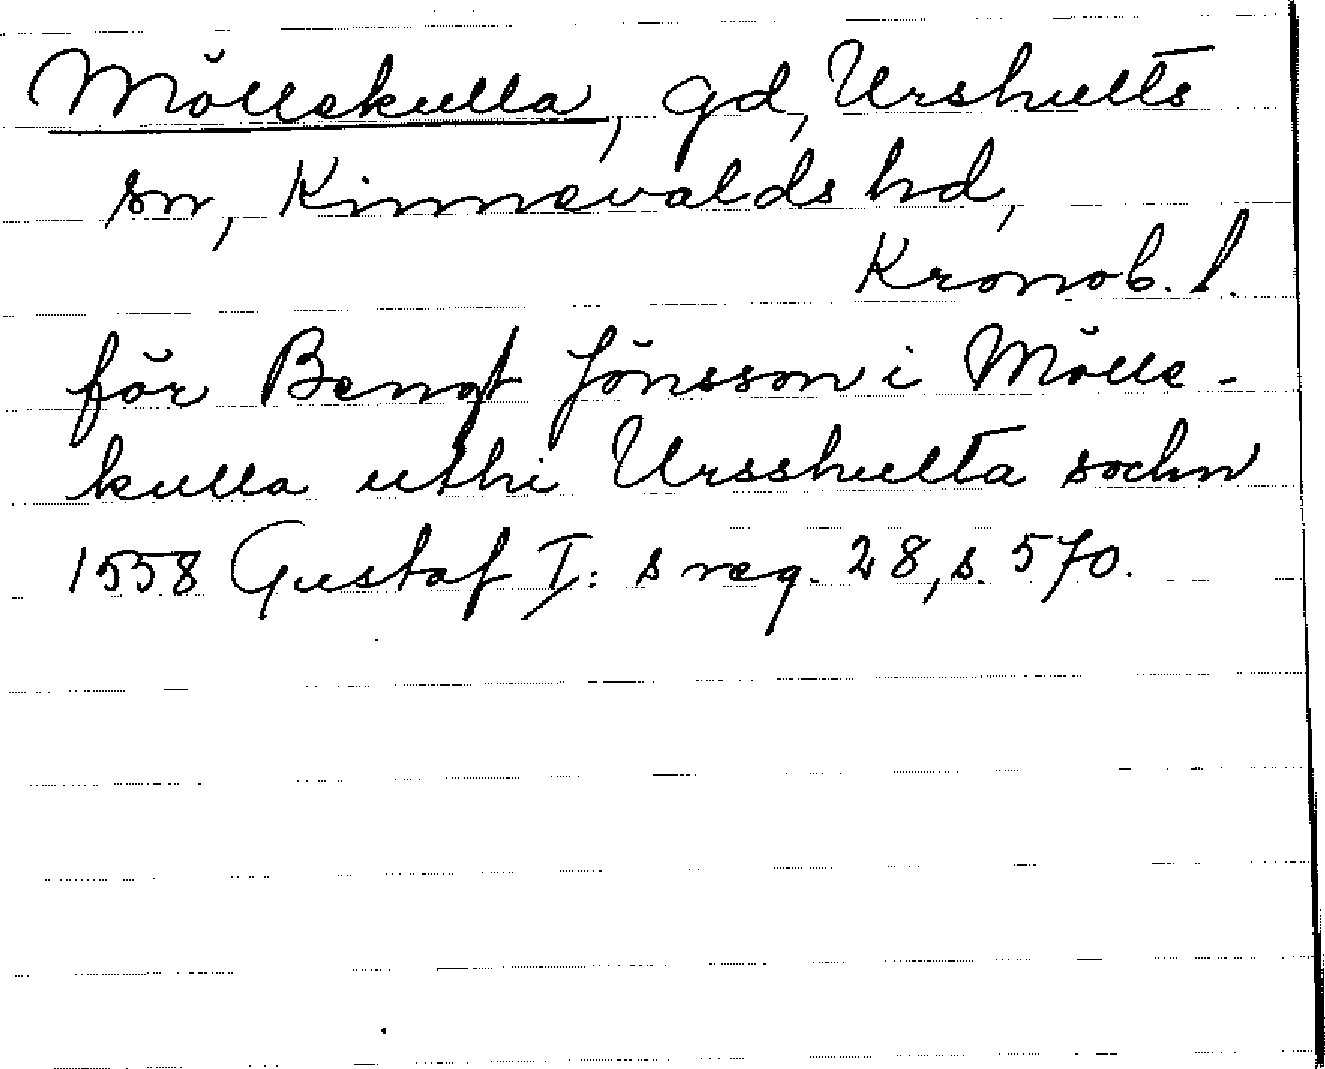 Möllekulla, gd, Urshults
sn, Kinnevalds hd,
Kronob. l.
för Bengt Jönsson i Mölle-
kulla uthi Ursshulta sochn
1558 Gustaf I:s reg. 28, s. 570.